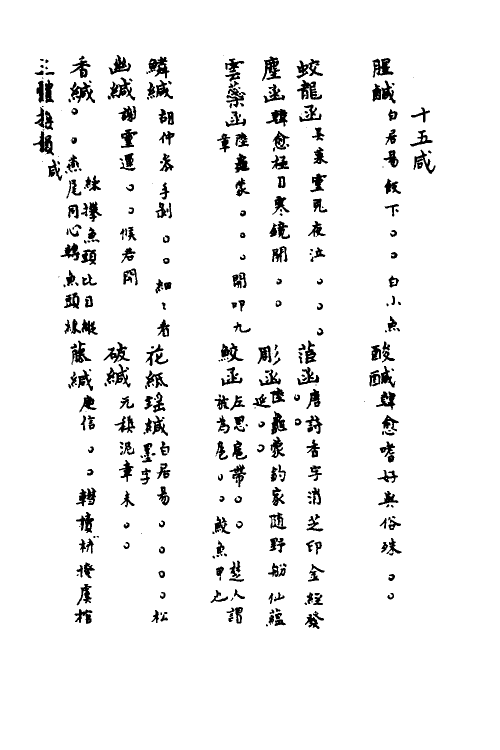 十五咸
腥鹹 白居易飯下。。白小魚 酸鹹 韓愈嗜好與俗殊。。
蛟龍函 吳萊靈死夜泣。。。 菭函 唐詩香字消芝印金經發。。
塵函 韓愈極目寒鏡開。。 彫函 陸龜蒙釣家随野船仙蘊逝。。
雲藥函 陸龜蒙。。。開叩九章 鮫函 左思扈帶。。楚人謂被為扈。。鮫魚甲也
鱗緘 胡仲參手剝。。細〻看 花紙瑶緘 白居易。。。。松墨字
幽緘 謝靈運。。候君開 破緘 元稹泥章未。。
香緘 。。魚尾同心 魚頭 魚頭比目縱 藤緘 庾信。。轉 掩虞棺
三體摭韻 咸